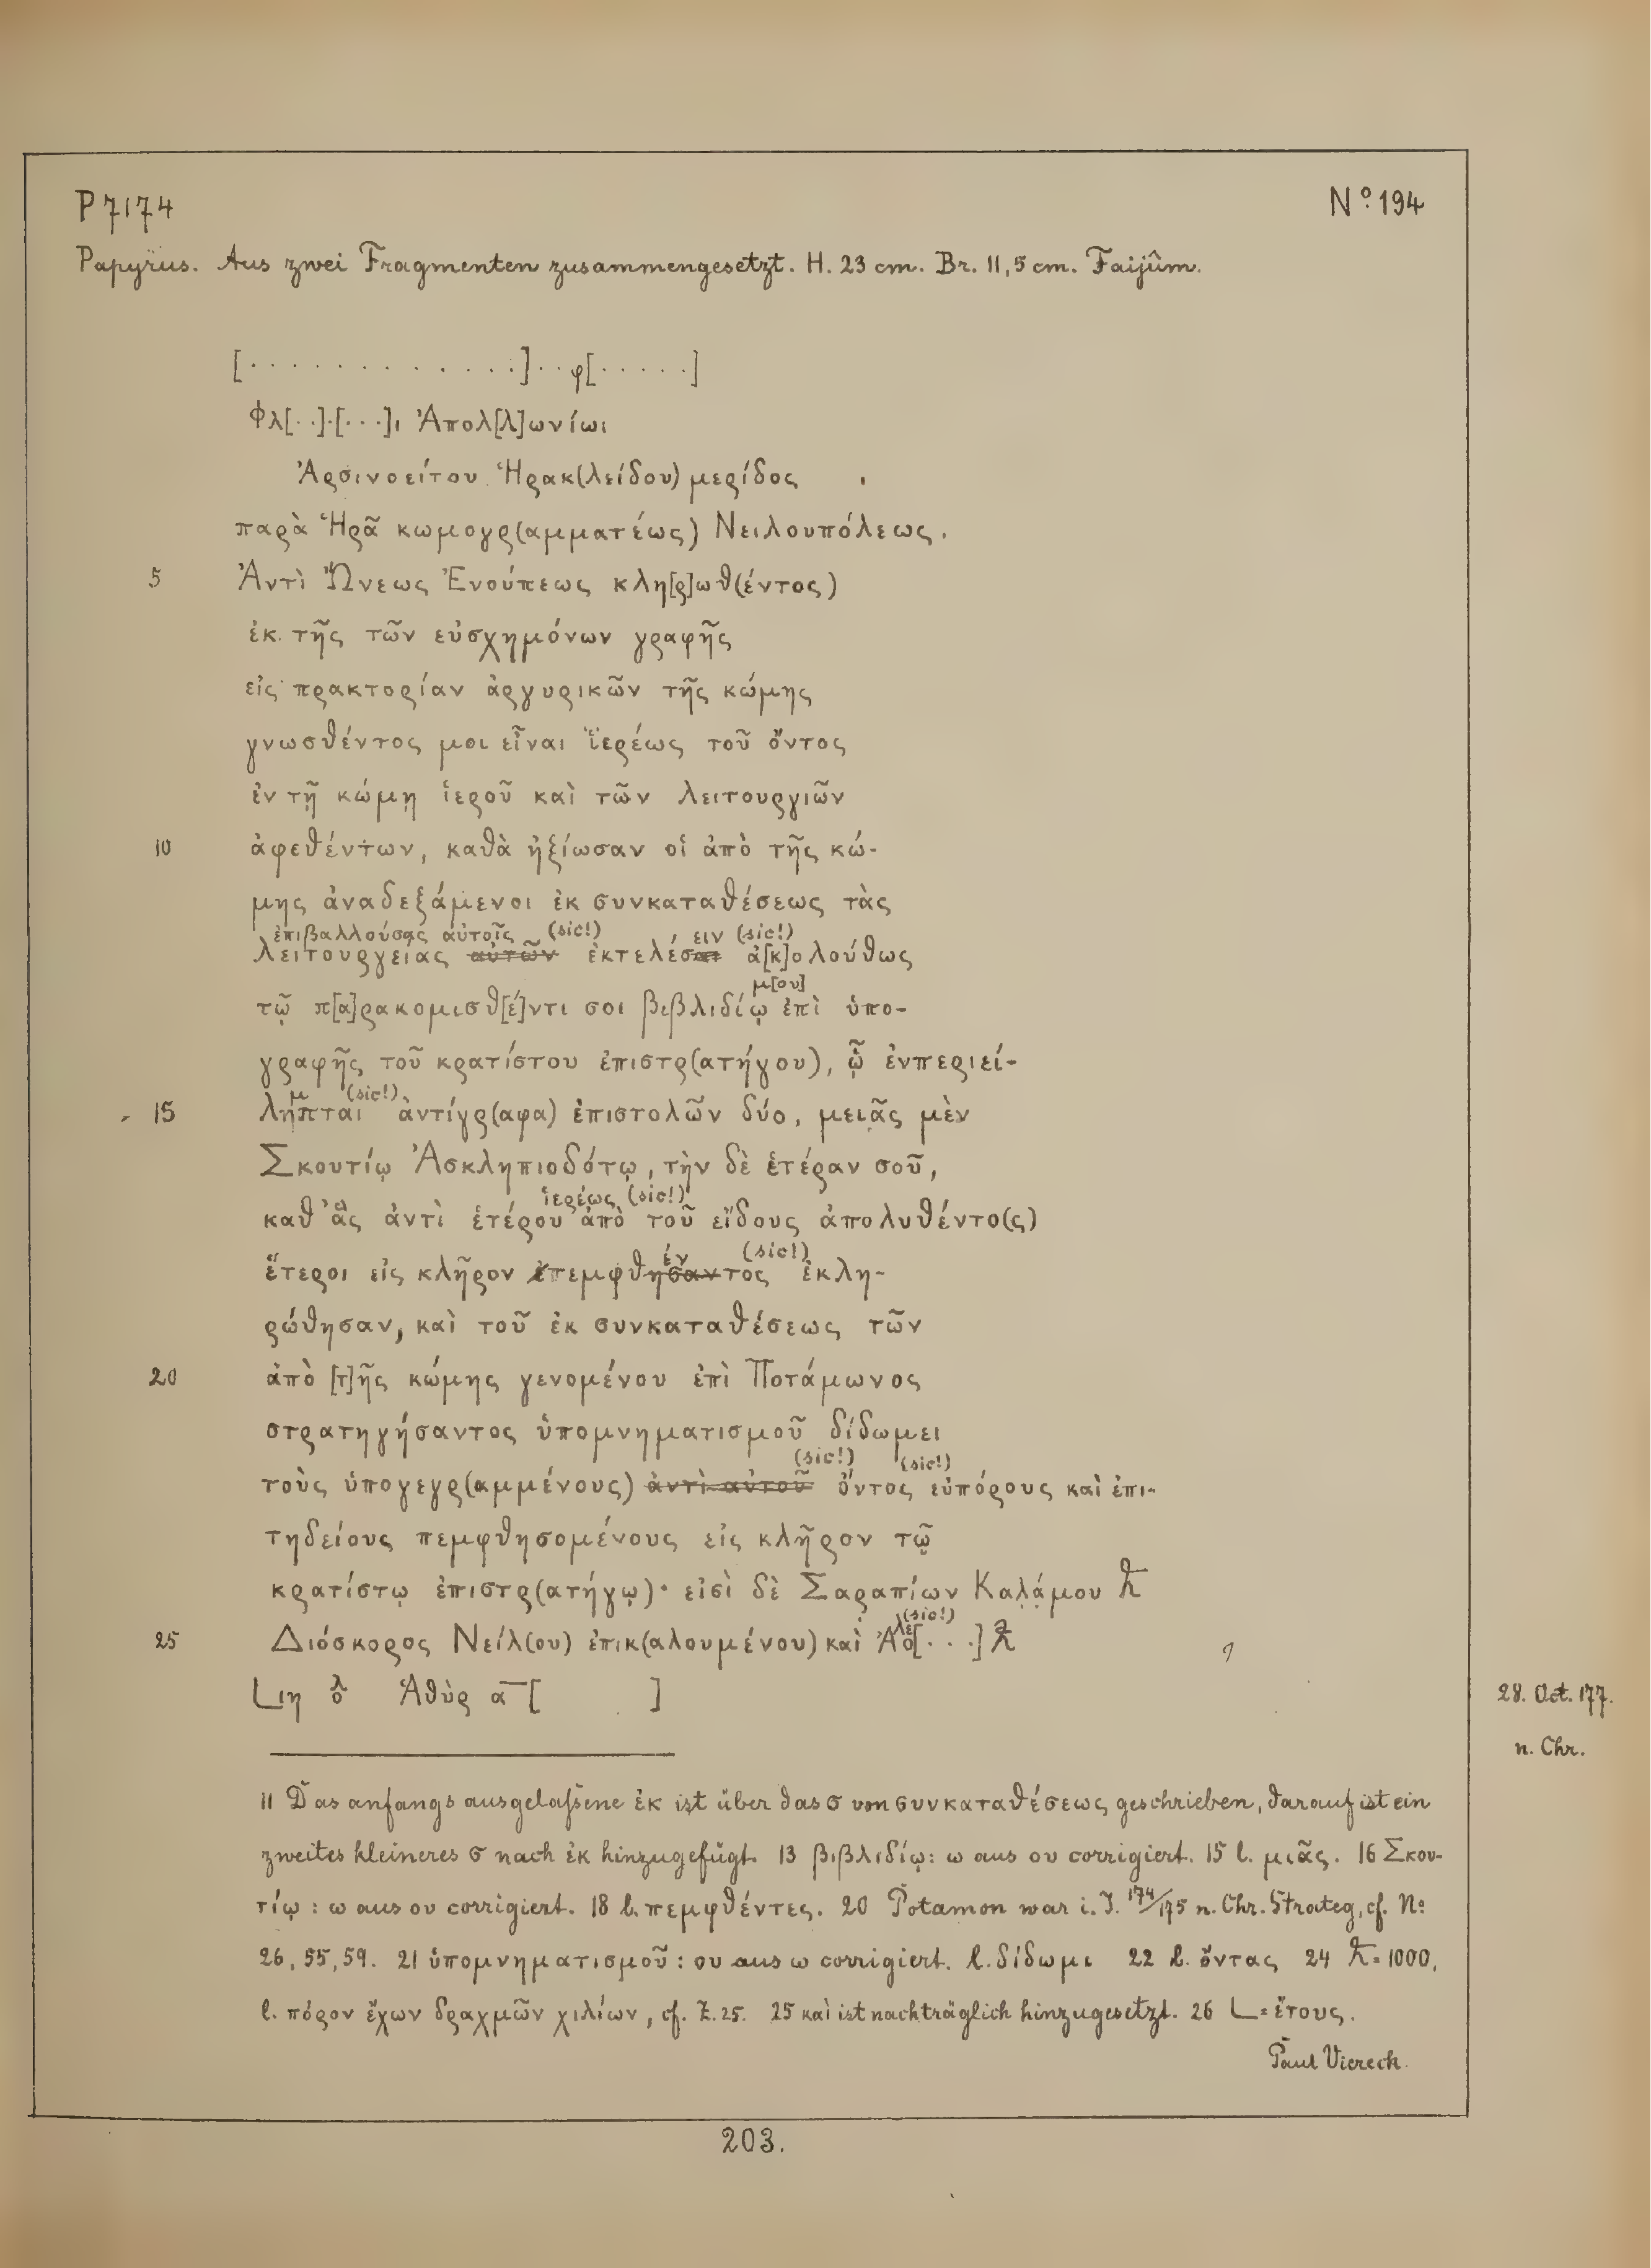 P 7174 Nº 194
Papyrus. Aus zwei Fragmenten zusammengesetzt. H. 23 cm. Br. 11,5 cm. Faijûm.
[· · · · · · · · · · · ·]· · φ[· · · · ·]
Φλ[· ·]·[· · ·]ι Ἀπολ[λ]ωνίωι
Ἀρσινοείτου Ἡρακ(λείδου) μερίδος
παρὰ Ἡρᾶ κωμογρ(αμματέως) Νειλουπόλεως.
5 Ἀντὶ Ὤνεως Ἐνούπεως κλη[ρ]ωθ(έντος)
ἐκ τῆς τῶν εὐσχημόνων γραφῆς
εἰς πρακτορίαν ἀργυρικῶν τῆς κώμης
γνωσθέντος μοι εἶναι ἱερέως τοῦ ὄντος
ἐν τῇ κώμῃ ἱεροῦ καὶ τῶν λειτουργιῶν
10 ἀφεθέντων, καθὰ ἠξίωσαν οἱ ἀπὸ τῆς κώ-
μης ἀναδεξάμενοι ἐκ συνκαταθέσεως τὰς
ἐπιβαλλούσας αὐτοῖς (sic!) ειν (sic!)
λειτουργείας αὐτῶν ἐκτελέσαι ἀ[κ]ολούθως
μ[ου]
τῷ π[α]ρακομισθ[έ]ντι σοι βιβλιδίῳ ἐπὶ ὑπο-
γραφῆς τοῦ κρατίστου ἐπιστρ(ατήγου), ᾧ ἐνπεριεί-
μ (sic!)
15 ληπται ἀντίγρ(αφα) ἐπιστολῶν δύο, μειᾶς μὲν
Σκουτίῳ Ἀσκληπιοδότῳ, τὴν δὲ ἑτέραν σοῦ,
ἱερέως (sic!)
καθ᾽ ἃς ἀντὶ ἑτέρου ἀπὸ τοῦ εἴδους ἀπολυθέντο(ς)
έν (sic!)
ἕτεροι εἰς κλῆρον ἐπεμφθησαντος ἐκλη-
ρώθησαν, καὶ τοῦ ἐκ συνκαταθέσεως τῶν
20 ἀπὸ [τ]ῆς κώμης γενομένου ἐπὶ Ποτάμωνος
στρατηγήσαντος ὑπομνηματισμοῦ δίδωμει
(sic!) (sic!)
τοὺς ὑπογεγρ(αμμένους) ἀντὶ αὐτοῦ ὄντος εὐπόρους καὶ ἐπι-
τηδείους πεμφθησομένους εἰς κλῆρον τῷ
κρατίστῳ ἐπιστρ(ατήγῳ)· εἰσὶ δὲ Σαραπίων Καλάμου
λε (sic!)
25 Διόσκορος Νείλ(ου) ἐπικ(αλουμένου) καὶ Ἀο[· · ·]
Lιη Ἁθὺρ α̅ [ ]
28. Oct. 177.
n. Chr.
11 Das anfangs ausgelassene ἐκ ist über das σ von συνκαταθέσεως geschrieben, darauf ist ein
zweites kleineres σ nach ἐκ hinzugefügt. 13 βιβλιδίῳ: ω aus ου corrigiert. 15 l. μιᾶς. 16 Σκου-
τίῳ : ω aus ου corrigiert. 18 l. πεμφθέντες. 20 Potamon war i. J. 174/175 n. Chr. Strateg, cf. Nº
26, 55, 59. 21 ὑπομνηματισμοῦ: ου aus ω corrigiert. l. δίδωμι 22 l. ὄντας 24 = 1000,
l. πόρον ἔχων δραχμῶν χιλίων, cf. Z. 25. 25 καὶ ist nachträglich hinzugesetzt. 26 L = ἔτους.
Paul Viereck.
203.